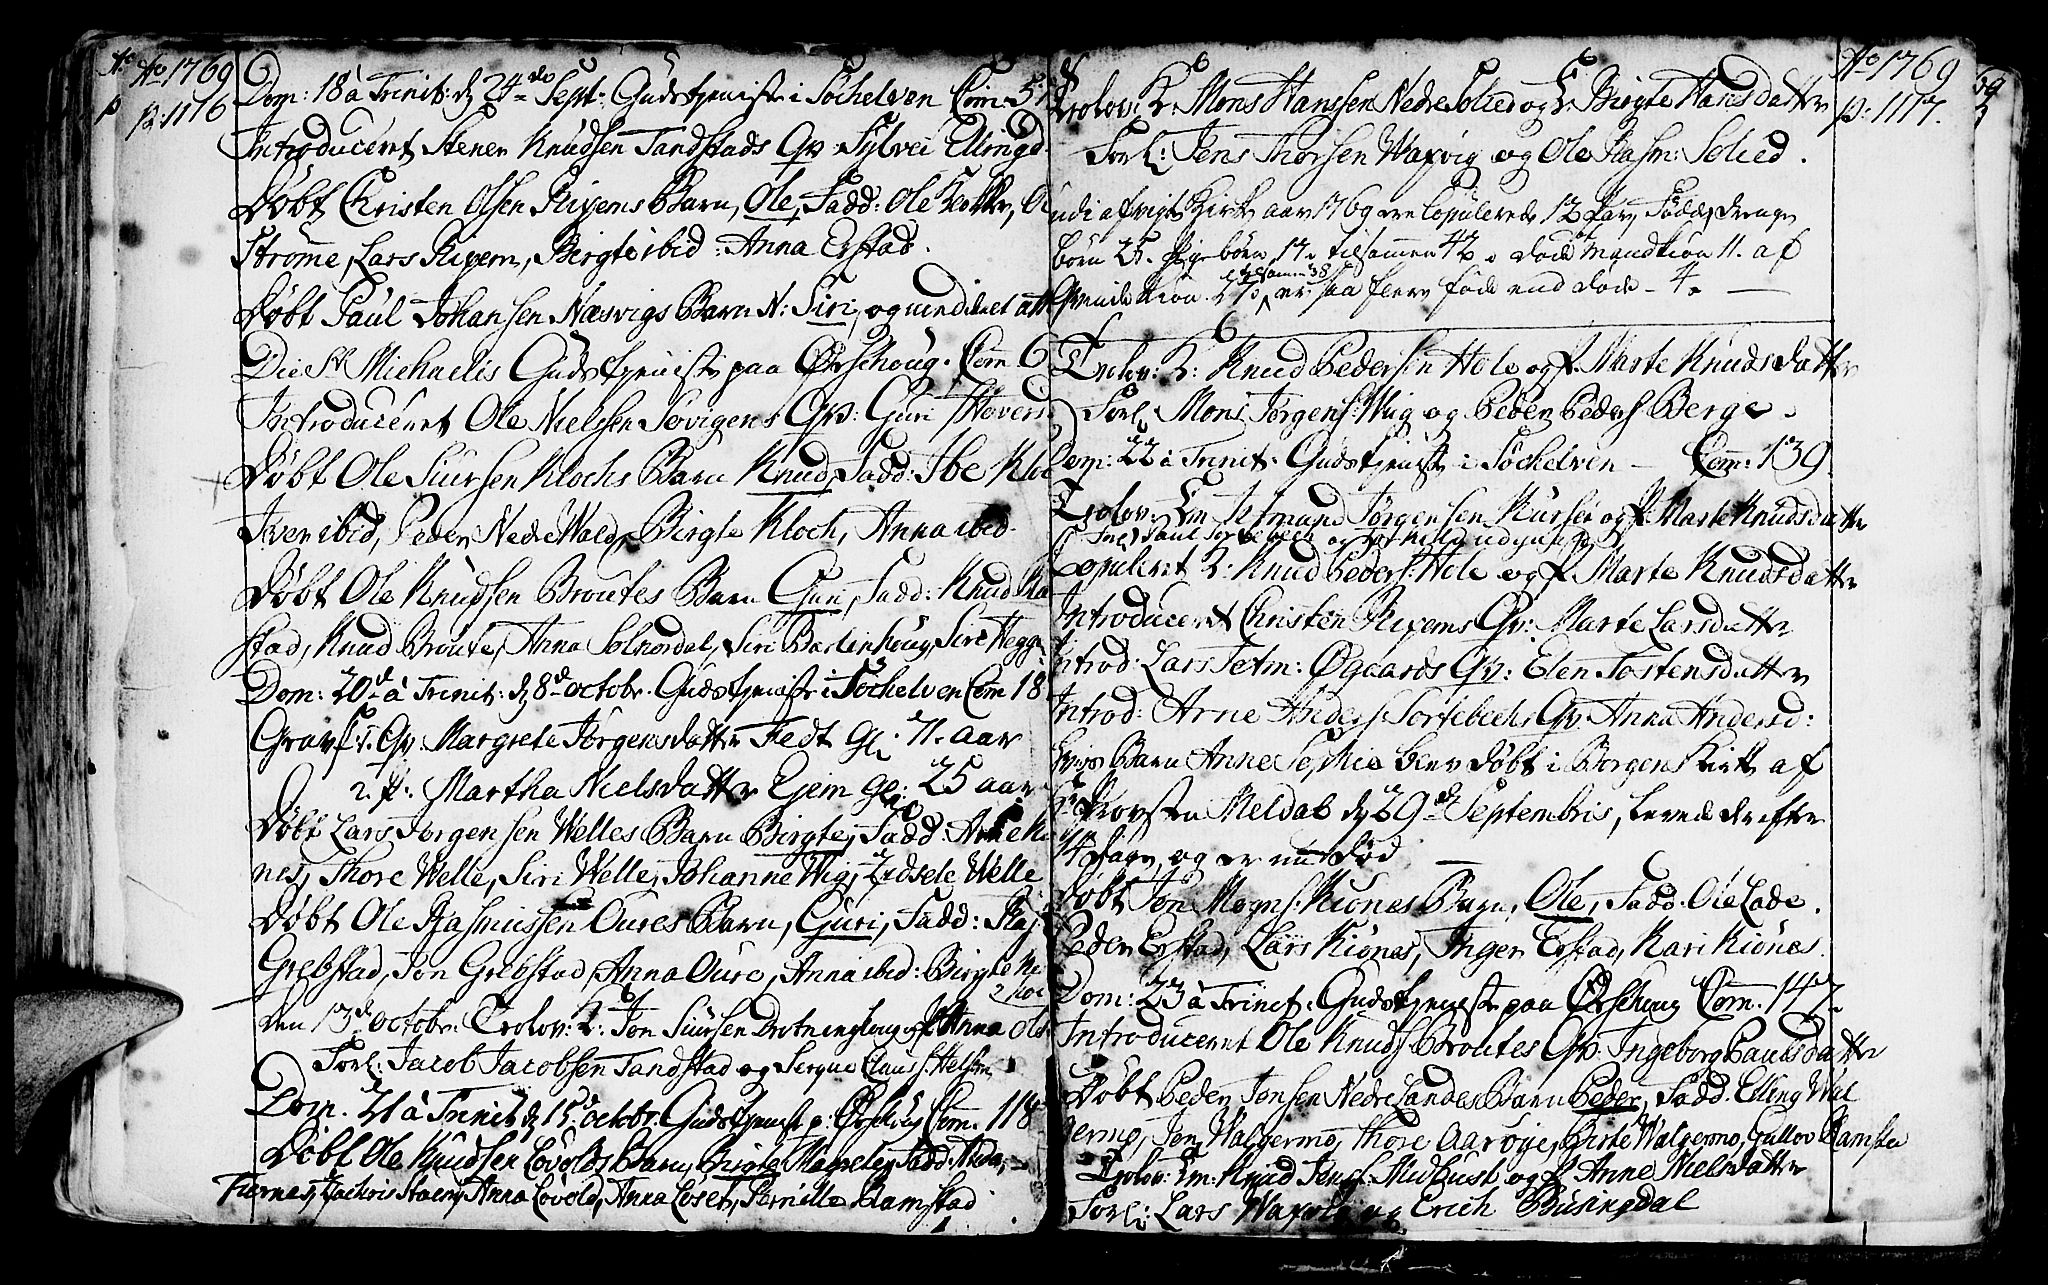 Ao 1769
p: 1116
Dom: 18 à Trinit: d 24de Sept: Gudstjeniste i Söchelven Com: 5
Introduceret Stener Knudsen Tandstads Qv: Sylvei Ellingd
Döbt Christen Olsen Rixems Barn, Ole, Fadd: Ole
Strøme, Lars Rixem, Birgte ibid: Anna Erstad.
Döbt Paul Johansen Næsvigs Barn N: Siri, og
Die St Michaelis Gudstjeniste paa Ørschoug. Com 6
Introduceret Ole Nielsen Sovigens Qv: Guri
Döbt Ole Siursen Klochs Barn Knud, Fadd: Ibe
Iver ibid, Peder Nedre Wald, Birgte Kloch, Anna ibid.
Döbt Ole Knudsen Broutes Barn Guri, Fadd: Knud
stad, Knud Broute, Anna Solnordal, Siri Bartenhoug, Siri Hegge
Dom: 20de à Trinit: d 8de octobr. Gudstjeniste i Söchelven Com 18
Gravf: 1. Qv Margrete Jörgensdatter Fedt gl. 71. aar
2. p. Martha Nielsdatter Ejem gl: 25 aar
Döbt Lars Jörgensen Welles Barn Birgte, Fadd:
nes, Thore Welle, Siri Welle, Johanne Wig, Zidsele Welle
Döbt Ole Rasmussen Oures Barn, Guri, Fadd:
Grebstad, Jon Grebstad, Anna Oure, Anna ibid: Birgte
den 13de octobr. Trolov: K: Jon Siursen Drotninghoug og p. Anna
Forl: Jacob Jacobsen Tandstad og
Dom. 21 à Trinit d 15de octobr. Gudstjenist p: Ørschoug Com. 118
Döbt Ole Knudsen Lovolds Barn, Birgte Magrete, Fadd:
Furnes, Anna Lovold, Anna Loset, Pernille Ramstad
Ao 1769
p: 1117.
Trolov: K: Mons Hanssen Nedre Solied og p Birgte Hansdatter
Forl: Jens Thorsen Waxvig og Ole Rasm: Solied.
udi afvigte Kirke aar 1769 ere Copulerede 12 par, Födde, drenge
börn 25. Pigebörn 17. tilsammen 42. döde af Mandkiön 11. af
Qvindekiön 27. tilsammen 38 er saa fleere föde end döde 4.
Trolov: K: Knud Pedersen Hole og p. Marte Knudsdatter
Forl: Mons Jörgens: Wiig og Peder Peders Berge.
Dom: 22 à Trinit: Gudstjeniste i Söchelven – Com: 139
Trolov: Em Jetmund Jörgensen og p. Marte Knudsdatter
Copuleret K: Knud Peders: Hole og p. Marte Knudsdatter
Introduceret Christen Rixems Qv: Marte Larsdatter
Introd: Lars Jetm: Øgaards Qv: Elen Tostensdatter
Introd: Arne Anders: Tortebechs Qv: Anna Andersd:
Barn Anne Sophie blev döbt i Borgens Kirke af
Provsten Meldal d 29de Septembris, levede derefter
14 dage, og er nu död
Döbt Jon Mogns: Kiönes Barn, Ole, Fadd. Ole Lade.
Peder Erstad, Lars Kiönes, Inger Erstad, Kari Kiönes.
Dom: 23 à Trinit: Gudstjeniste paa Ørschoug Com. 147
Introduceret Ole Knuds Broutes Qv: Ingeborg Paulsdatter
Döbt Peder Jensen Nedrelandes Barn Peder, Fadd. Elling Wal
germo, Jon Walgermo, Thore Aaröye, Birte Walgermo, Gullov Ramstad
Trolov: Em: Knud Jens: Midhust og p Anne Nielsdatter
Forl: Lars Waxvig og Erich Busingdal